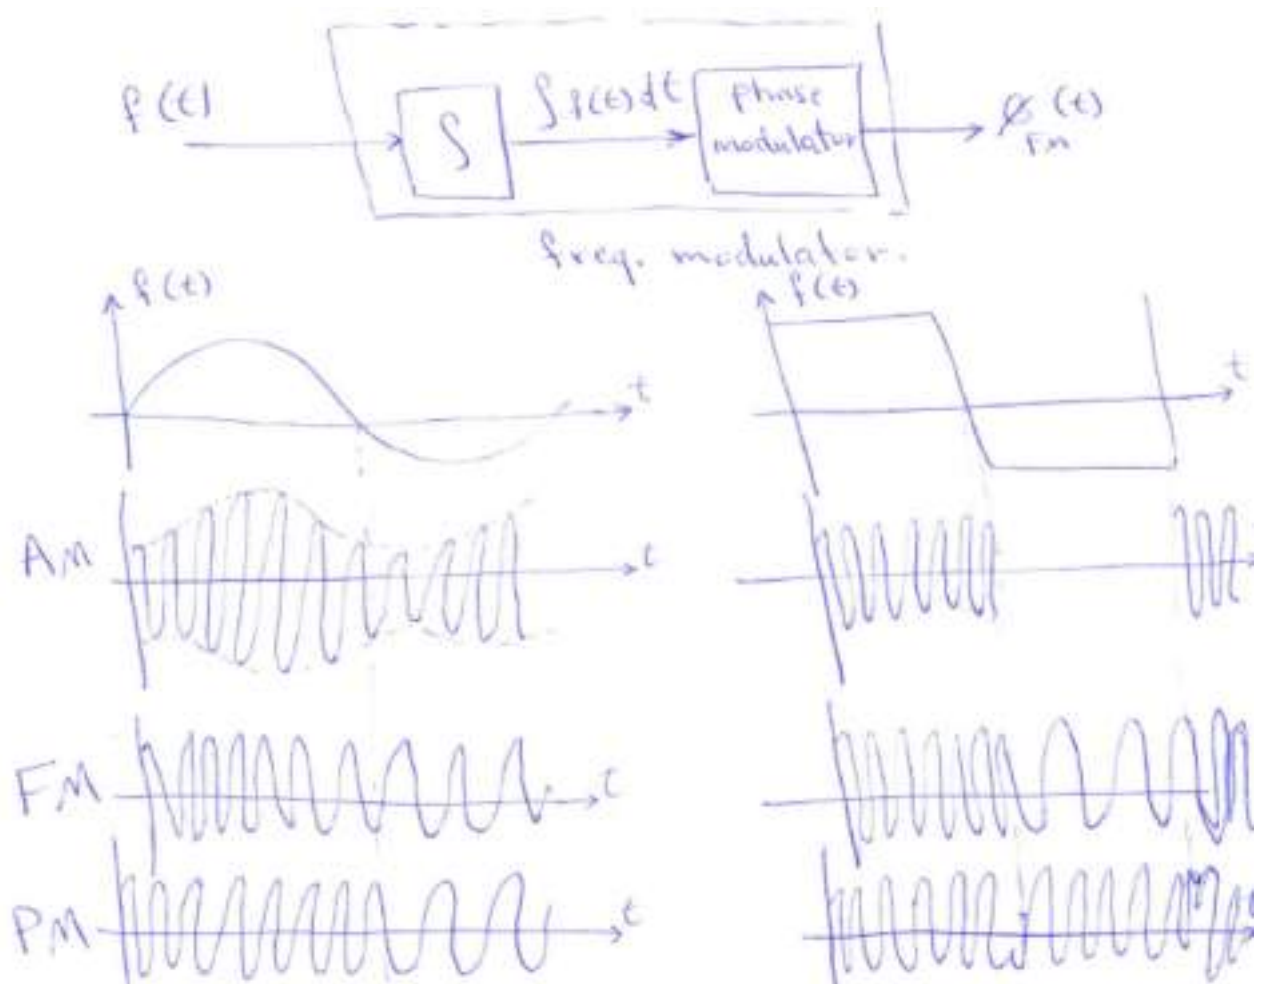 f(t)
∫
∫f(t)dt
phase
modulator
ϕ(t)
FM
freq. modulator.
f(t)
t
f(t)
t
AM
t
FM
t
PM
t
t